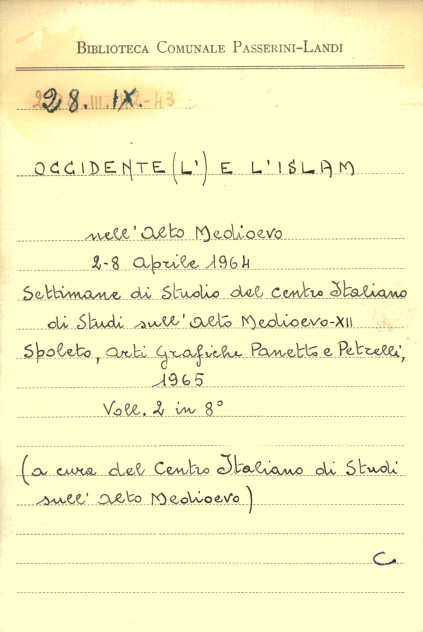 Biblioteca Comunale Passerini-Landi
28. IX.
OCCIDENTE (L') E L'ISLAM
nell'alto Medioevo
2-8 aprile 1964
Settimane di Studio del Centro Italiano
di Studi sull'alto Medioevo-XII
Spoleto, arti Grafiche Panetto e Petrelli,
1965
Voll. 2 in 8°
(a cura del Centro Italiano di Studi
sull'alto Medioevo)
C